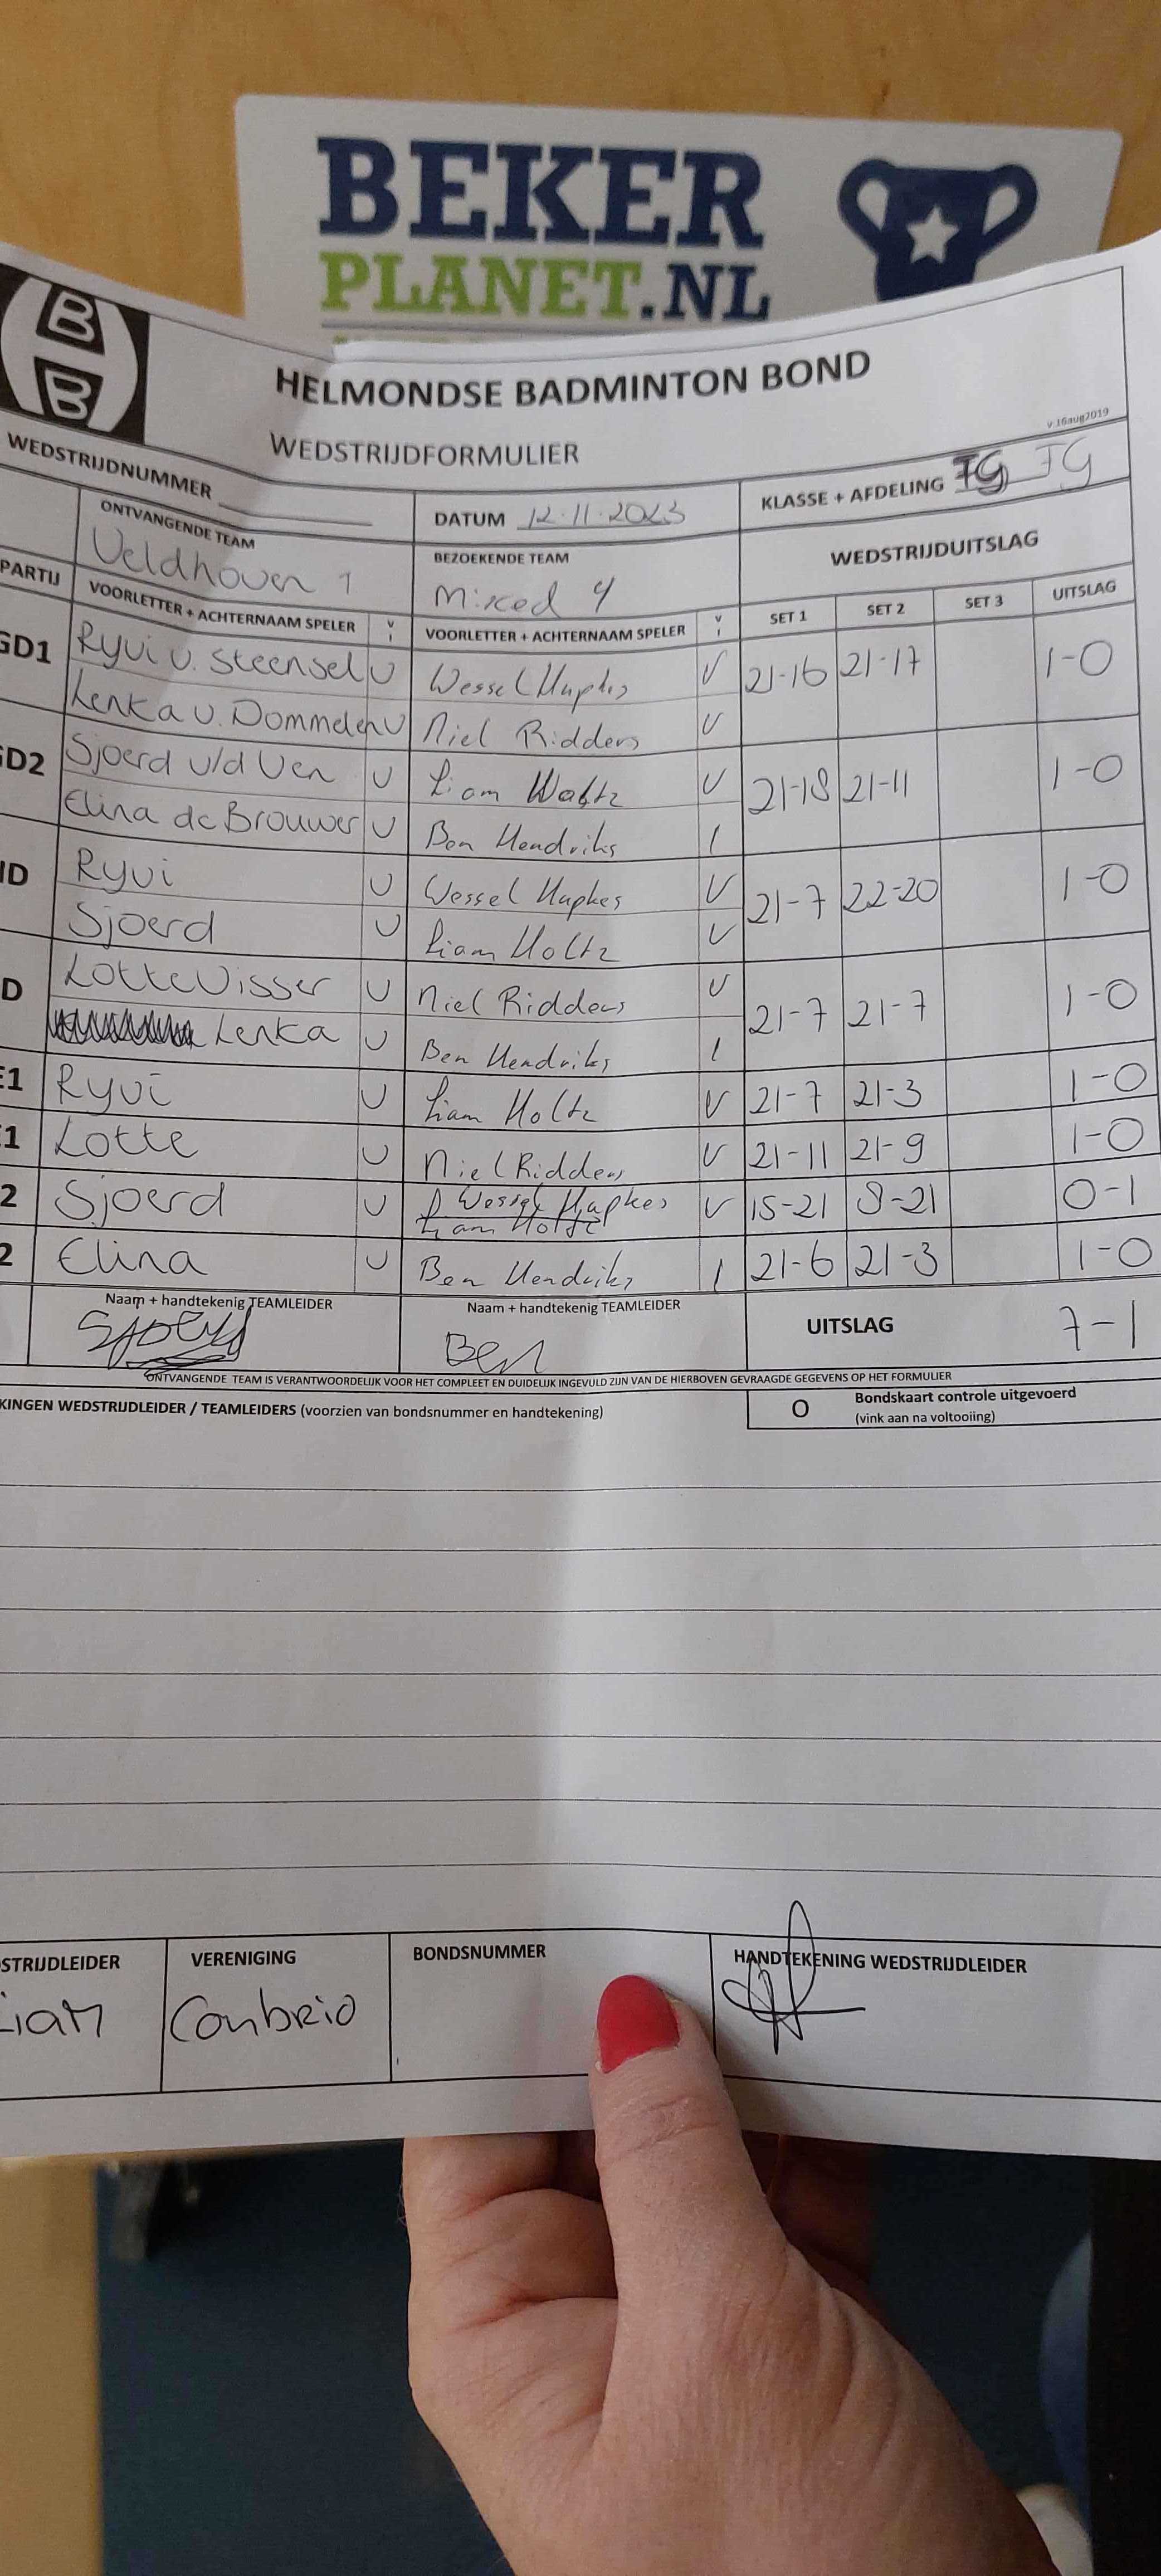 BEKER
PLANET.NL
B
B
HELMONDSE BADMINTON BOND
WEDSTRIJDFORMULIER
v.16aug2019
WEDSTRIJDNUMMER
DATUM 12-11-2023
KLASSE + AFDELING JG JG
ONTVANGENDE TEAM
Veldhoven 1
BEZOEKENDE TEAM
Mixed 4
WEDSTRIJDUITSLAG
PARTIJ VOORLETTER + ACHTERNAAM SPELER V I VOORLETTER + ACHTERNAAM SPELER V I SET 1 SET 2 SET 3 UITSLAG
GD1 Ryui v. Steensel V Wessel Hupkes V 21-16 21-17 1-0
Lenka v. Dommelen V Niel Ridders V
GD2 Sjoerd v/d Ven V Liam V 21-18 21-11 1-0
Elina de Brouwer V Ben Hendriks I
ID Ryui V Wessel Hupkes V 21-7 22-20 1-0
Sjoerd V Liam Holtz V
D Lotte Visser V Niel Ridders V 21-7 21-7 1-0
Lenka V Ben Hendriks I
E1 Ryui V Liam Holtz V 21-7 21-3 1-0
E1 Lotte V Niel Ridders V 21-11 21-9 1-0
2 Sjoerd V Wessel Hupkes V 15-21 8-21 0-1
Liam Holtz
2 Elina V Ben Hendriks I 21-6 21-3 1-0
Naam + handtekenig TEAMLEIDER
Sjoerd
Naam + handtekenig TEAMLEIDER
Ben
UITSLAG 7-1
ONTVANGENDE TEAM IS VERANTWOORDELIJK VOOR HET COMPLEET EN DUIDELIJK INGEVULD ZIJN VAN DE HIERBOVEN GEVRAAGDE GEGEVENS OP HET FORMULIER
KINGEN WEDSTRIJDLEIDER / TEAMLEIDERS (voorzien van bondsnummer en handtekening)
O Bondskaart controle uitgevoerd
(vink aan na voltooiing)
STRIJDLEIDER VERENIGING BONDSNUMMER HANDTEKENING WEDSTRIJDLEIDER
Liam Conbrio